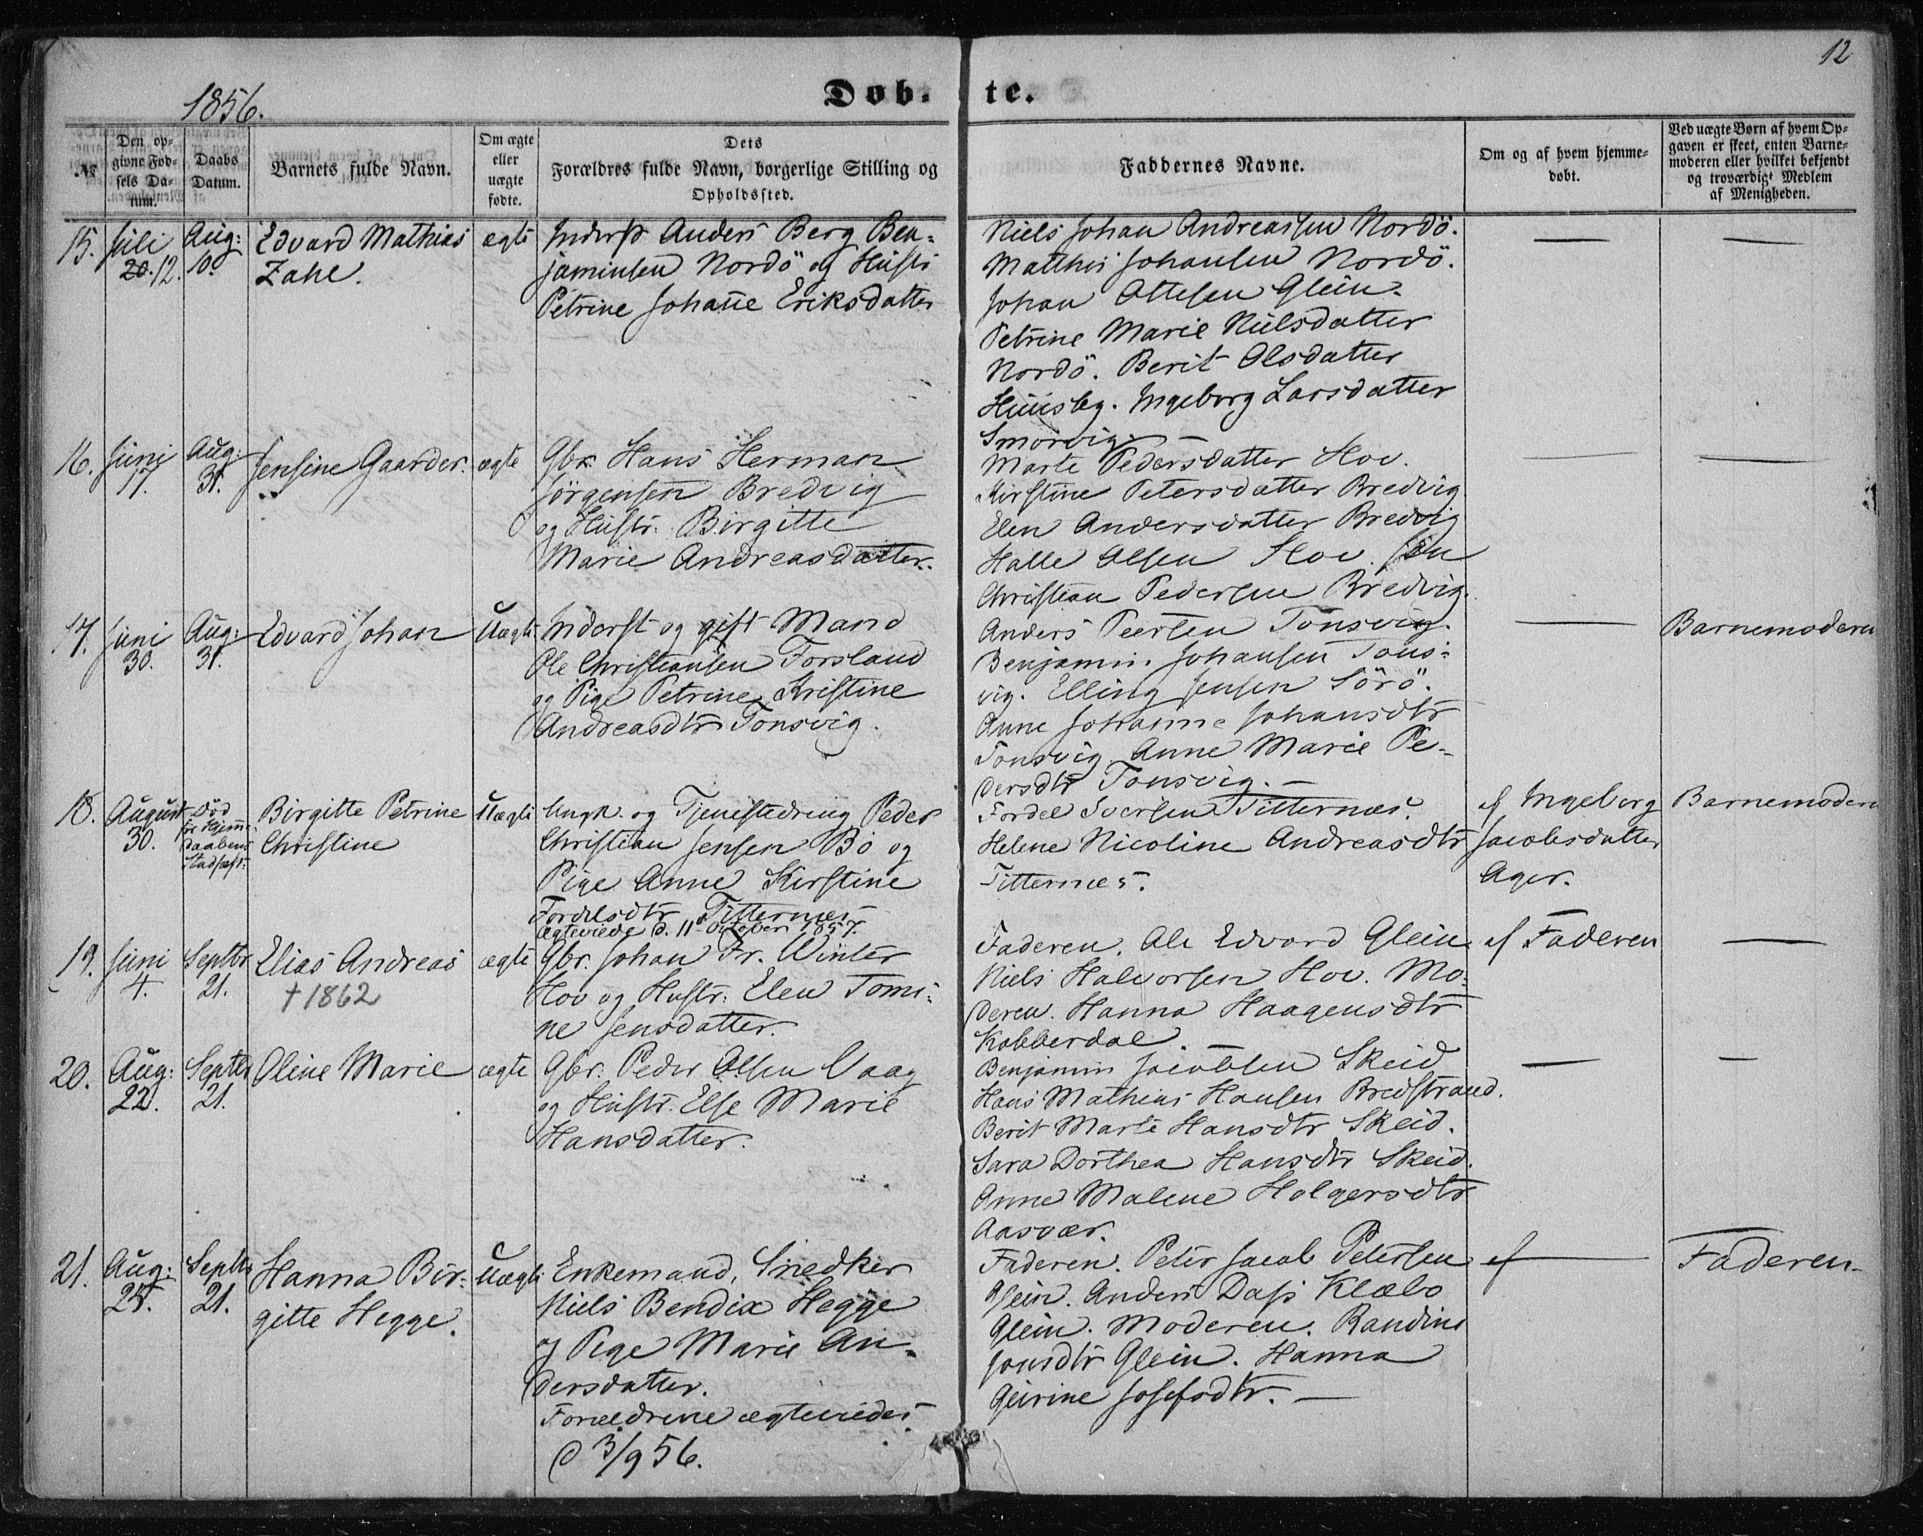 12
1856.
Døb-te.
№
Den op-
givne Fød-
sels Da-
tum.
Daabs
Datum.
Barnets fulde Navn.
Om ægte
eller
uægte
fødte.
Dets
Forældres fulde Navn, borgerlige Stilling og
Opholdssted.
Faddernes Navne.
Om og af hvem hjemme-
døbt.
Ved uægte Børn af hvem Op-
gaven er skeet, enten Barne-
moderen eller hvilket bekjendt
og troværdigt Medlem
af Menigheden.
15. Juli
20. 12.
Aug:
10.
Edvard Mathias
Zahl.
ægte
Inderst Anders Berg Ben-
jaminsen Nordö og Hustr
Petrine Johanne Eriksdatter
Niels Johan Andreassen Nordö.
Matthis Johansen Nordö.
Johan Ottesen Glein.
Petrine Marie Nielsdatter
Nordö. Berit Olsdatter
Huusby. Ingeborg Larsdatter
Smörvig.
16. Juni
17.
Aug:
31.
Jensine Gaarder.
ægte
Gbr. Hans Herman
Jörgensen Bredvig
og Hustr. Birgitte
Marie Andreasdatter.
Marte Pedersdatter Hov.
Kirstine Petersdatter Bredvig
Elen Andersdatter Bredvig
Halle Olsen Hov.
Christian Pedersen Bredvig.
17. Juni
30.
Aug:
31.
Edvard Johan
Uægte
Inderst og gift Mand
Ole Christiansen Forsland
og Pige Petrine Kristine
Andreasdtr Tonsvig.
Anders Peersen Tonsvig.
Benjamin Johansen Tons-
vig. Elling Jensen Sörö.
Anne Johanne Johansdtr
Tonsvig Anne Marie Pe-
dersdtr Tonsvig.
Barnemoderen
18. August
30.
Död
før Hjemme
daabens
Stadfæst.
Birgitte Petrine
Christine
Uægte
Ungk. og Tjenestedreng Peder
Christian Jensen Bö og
Pige Anne Kirstine
Fordelsdtr Titternæs
ægteviede d. 11te October 1857.
Fordel Iversen Titternæs.
Helene Nicoline Andreasdtr
Titternæs.
af Ingeborg
Jacobsdatter
Ager.
Barnemoderen
19. Juni
4.
Septbr
21.
Elias Andreas
† 1862
ægte
Gbr. Johan Fr. Winter
Hov og Hustr: Elen Tomi-
ne Jensdatter.
Faderen. Ole Edvard Glein
Niels Halvorsen Hov. Mo-
deren. Hanna Haagensdtr
Kobberdal.
af Faderen
20. Aug:
22.
Septbr
21.
Oline Marie
ægte
Gbr. Peder Olsen Vaag
og Hustr. Else Marie
Hansdatter.
Benjamin Jacobsen Skeid
Hans Mathias Hansen Bredstrand.
Berit Marte Hansdtr Skeid.
Sara Dorthea Hansdtr Skeid.
Anne Malene Holgersdtr
Aasvær.
21. Aug:
25.
Septbr
21.
Hanna Bir-
gitte Hegge.
Uægte
Enkemand, Snedker
Niels Bendix Hegge
og Pige Marie An-
dersdatter.
Forældrene ægteviedes
d 3/9 56.
Faderen. Peter Jacob Petersen
Glein. Anders Dass Klæbo
Glein. Moderen. Randine
Jonsdtr Glein. Hanna
Geirine Josefsdtr.
af
Faderen